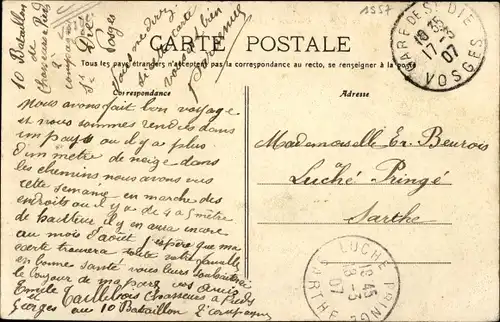 1557
10 Bataillon
de
Chasseurs à Pied
2 compagnie
St Dié
Vosges
Vous me direz
si
carte
vous
bien
CARTE POSTALE
Tous les pays étrangers n'acceptent pas la correspondance au recto, se renseigner à la poste
Correspondance
Adresse
GARE DE ST DIE
10 35
17-3
07
VOSGES
nous avons fait bon voyage
et nous sommes rendus dans
un pays ou il y a plus
d'un mètre de neige dans
les chemins nous avons vus
cette semaine en marche des
endroits ou il y a de 4 a 5 mètre
de hauteur il y en aura encore
au mois d'aout j'espère que ma
carte trouvera toute votre famille
en bonne santé vous leurs souhaiterez
le bonjour de ma part vos amis
Emile Taillebois Chasseurs à Pieds
et
Georges au 10 Bataillon 2 compagnie
Mademoiselle Er. Beurois
à
Luché Pringé
Sarthe
LUCHÉ PRINGÉ
18-3
07
SARTHE